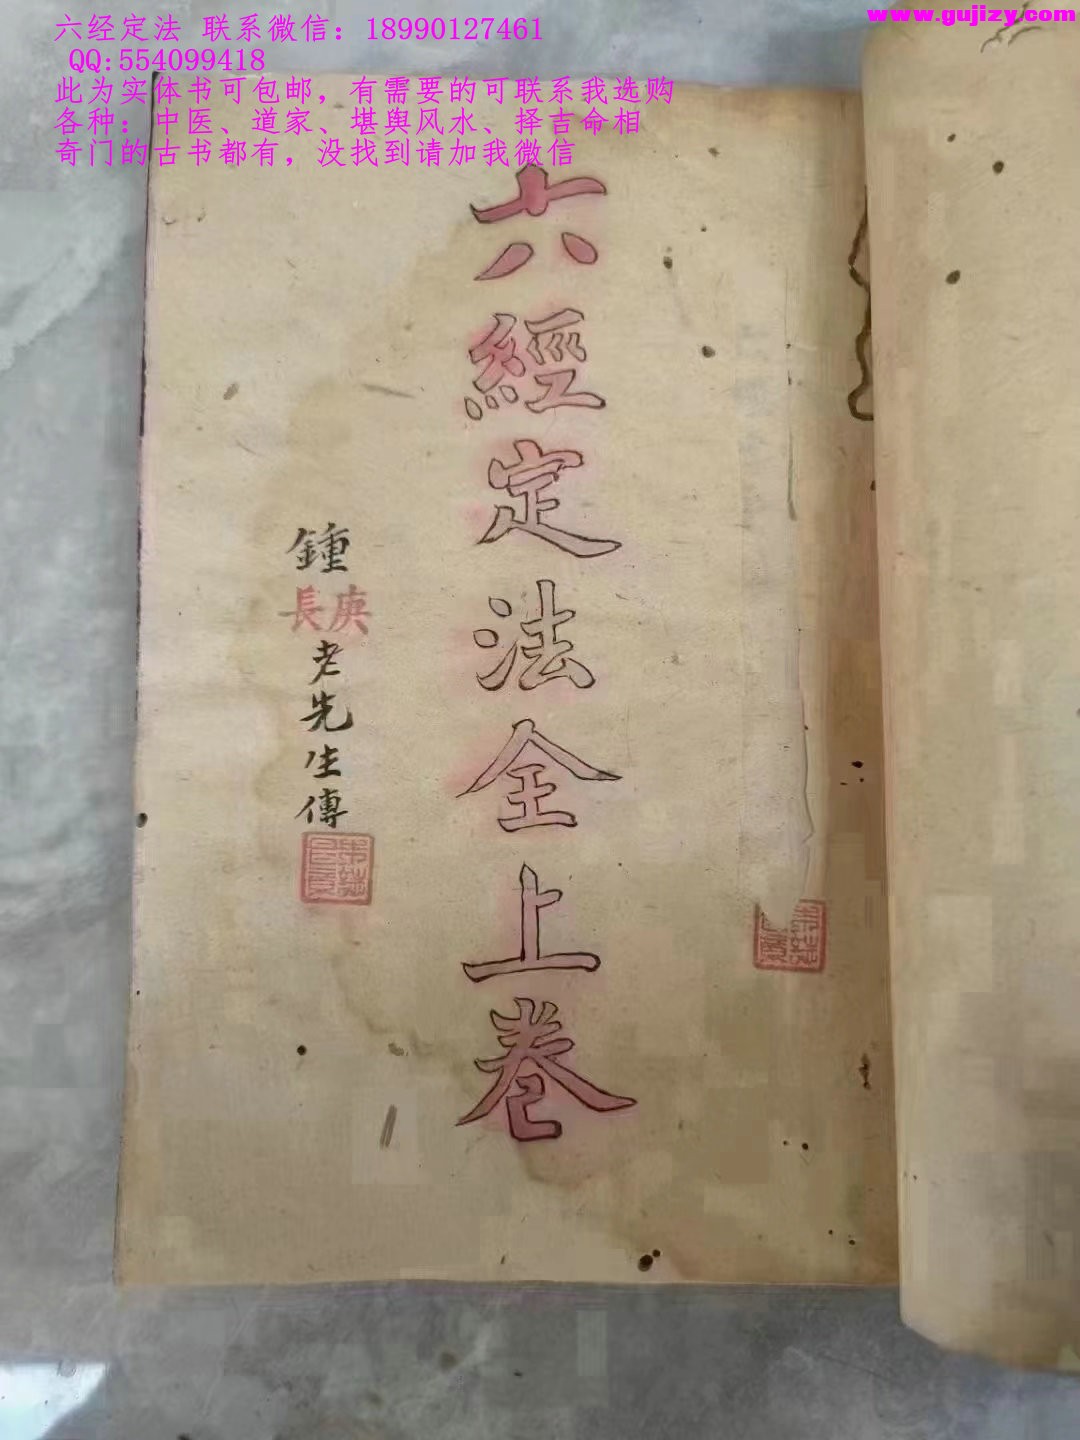 六经定法 联系微信：18990127461
QQ:554099418
此为实体书可包邮，有需要的可联系我选购
各种：中医、道家、堪舆风水、择吉命相
奇门的古书都有，没找到请加我微信
www.gujizy.com
六經定法全上卷
鍾庚長老先生傳